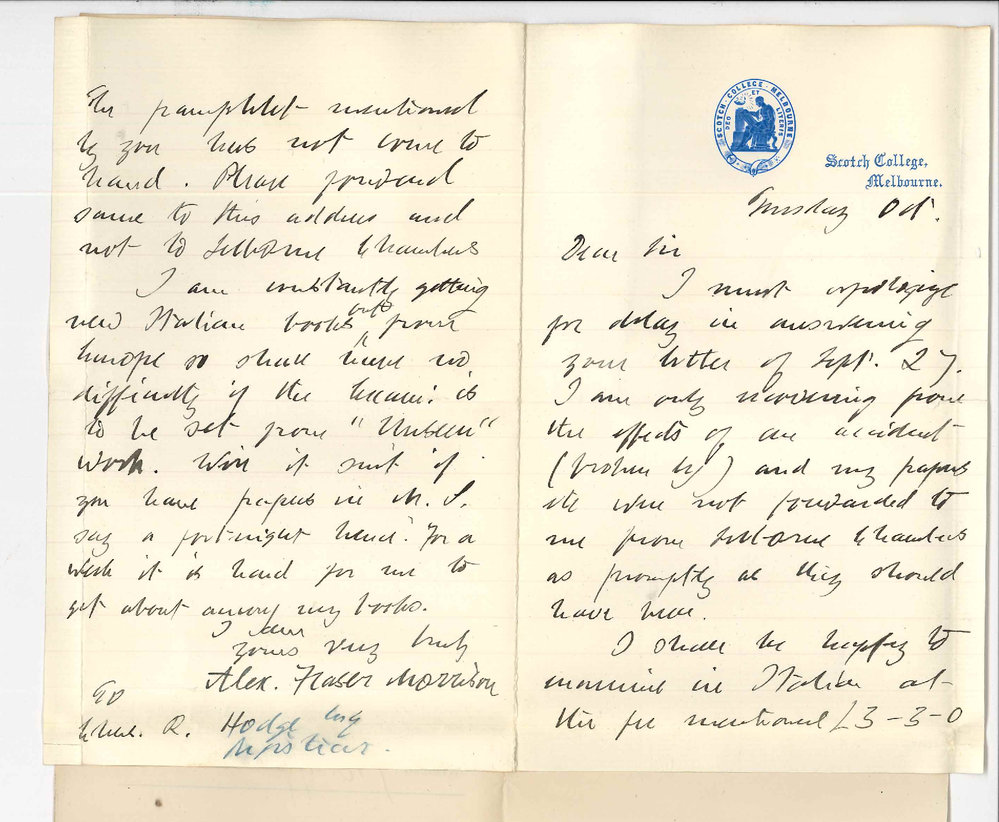 SCOTCH · COLLEGE · MELBOURNE
DEO ET LITERIS
Scotch College,
Melbourne.
Tuesday Oct.
Dear Sir
I must apologize
for delay in answering
your letter of Sept. 27.
I am only recovering from
the effects of an accident
(broken leg) and my papers
etc were not forwarded to
me from Selborne Chambers
as promptly as they should
have been.
I shall be happy to
examine in Italian at
the fee mentioned £3-3-0
The pamphlet mentioned
by you has not come to
hand. Please forward
same to this address and
not to Selborne Chambers
I am constantly getting
new Italian books out from
Europe so shall have no
difficulty if the Exam: is
to be set from "Unseen"
work. Will it suit if
you have papers in M.S.
say a fortnight hence. For a
week it is hard for me to
get about among my books.
I am
yours very truly
Alex. Fraser Morrison
To
Chas. R. Hodge Esq
Registrar.